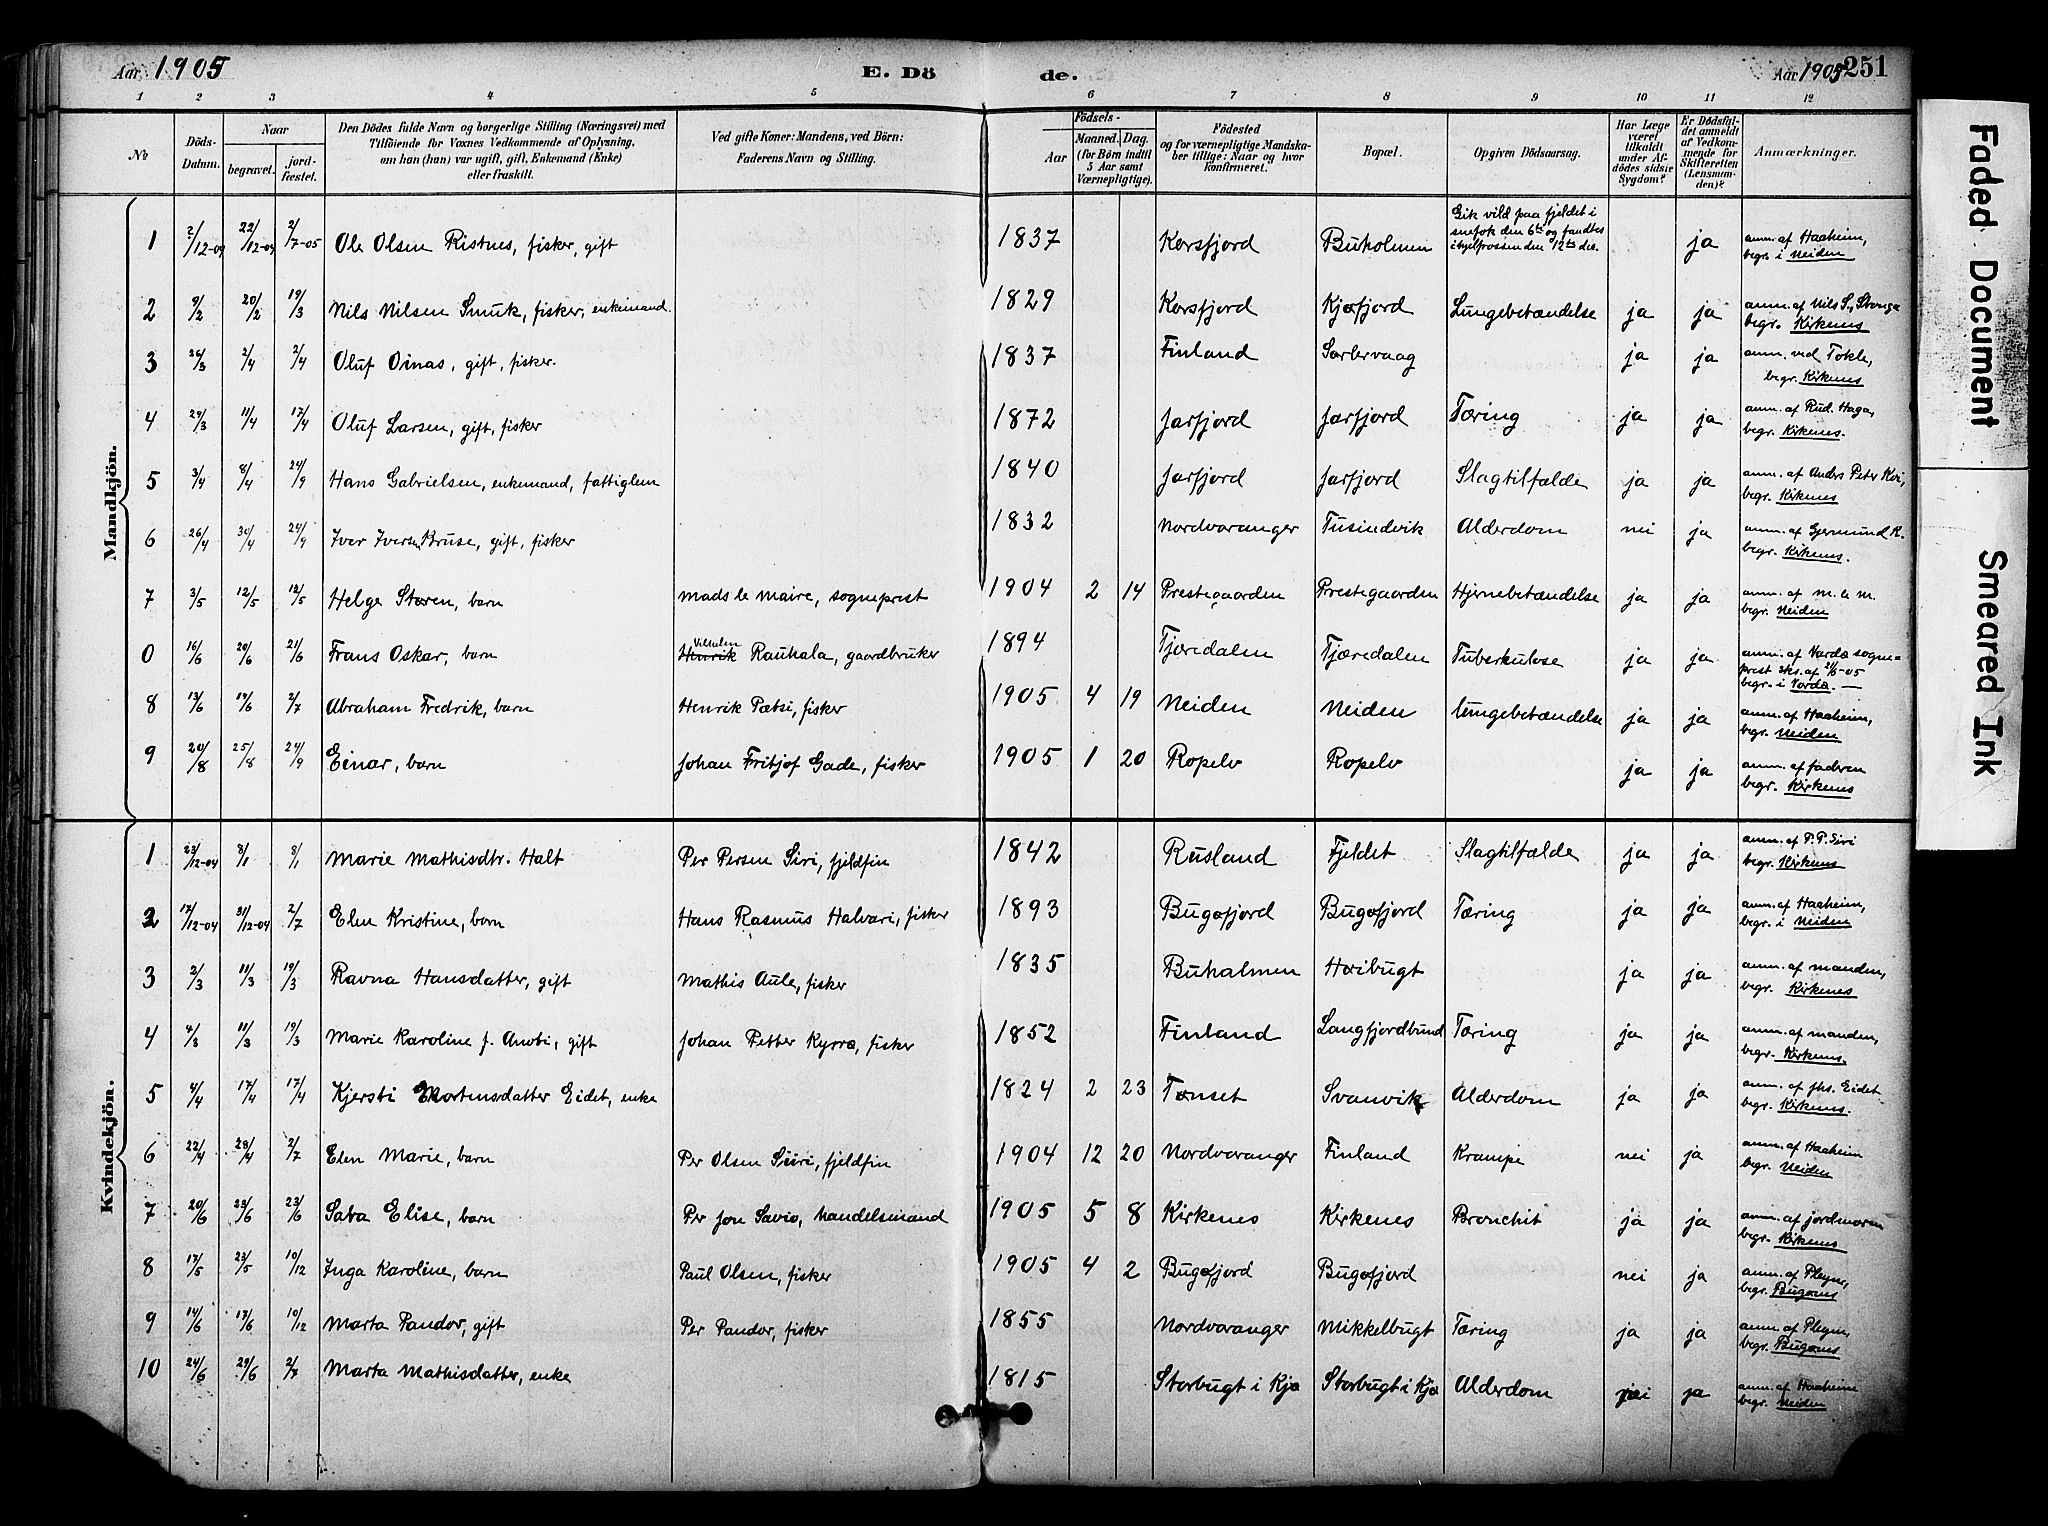 Aar 1905 E. Dö de. Aar 1905 251
1 2 3 4 5 6 7 8 9 10 11 12
No
Döds-Datum.
Naar
begravet.
jord-fæstet.
Den Dödes fulde Navn og borgerlige Stilling (Næringsvei) med
Tilföiende for Voxnes Vedkommende af Oplysning,
om han (hun) var ugift, gift, Enkemand (Enke)
eller fraskilt.
Ved gifte Koner: Mandens, ved Börn:
Faderens Navn og Stilling.
Födsels-
Aar
Maaned. Dag.
(for Börn indtil
5 Aar samt
Værnepligtige).
Födested
og for værnepligtige Mandska-
ber tillige: Naar og hvor
konfirmeret.
Bopæl.
Opgiven Dödsaarsag.
Har Læge
været
tilkaldt
under Af-
dödes sidste
Sygdom?
Er Dödsfal-
det anmeldt
af Vedkom-
mende for
Skifteretten
(Lensman-
den)?
Anmærkninger.
Mandkjön.
1 2/12-04 22/12-04 2/7-05 Ole Olsen Ristnes, fisker, gift 1837 Korsfjord Buholmen Gik vild paa fjeldet i
snefok den 6te og fandtes
ihjelfrossen den 12te des. ja anm. af Haaheim,
begr. i Neiden
2 9/2 20/2 19/3 Nils Nilsen Smuk, fisker, enkemand 1829 Korsfjord Kjøfjord Lungebetændelse ja ja anm. af Nils S.,
begr. Kirkenes
3 26/3 2/4 2/4 Oluf Oinas, gift, fisker. 1837 Finland Sarlervaag ja ja anm. ved Tokle,
begr. Kirkenes
4 29/3 11/4 17/4 Oluf Larsen, gift, fisker 1872 Jarfjord Jarfjord Tæring ja ja anm. af Rud. Haga,
begr. Kirkenes.
5 3/4 8/4 24/9 Hans Gabrielsen, enkemand, fattiglem 1840 Jarfjord Jarfjord Slagtilfælde ja ja anm. af Anders Peter
begr. Kirkenes
6 26/4 30/4 24/9 Iver Iversen Bruse, gift, fisker 1832 Nordvaranger Tusindvik Alderdom nei ja anm. af Gjermund R.
begr. Kirkenes.
7 3/5 12/5 12/5 Helge Støren, barn Mads le Maire, sogneprest 1904 2 14 Prestegaarden Prestegaarden Hjernebetændelse ja ja anm. af M. le M.
begr. Neiden
0 16/6 20/6 21/6 Frans Oskar, barn Henrik Vilhelm Rauhala, gaardbruker 1894 Tjæredalen Tjæredalen Tuberkulose ja ja anm. af Vardø sogne=
prest sks. af 21/6-05
begr. i Vardø. —
8 13/6 19/6 2/7 Abraham Fredrik, barn Henrik Pætsi, fisker 1905 4 19 Neiden Neiden lungebetændelse ja ja anm. af Haaheim,
begr. Neiden
9 20/8 25/8 24/9 Einar, barn Johan Fritjof Gade, fisker 1905 1 20 Ropelv Ropelv ja ja anm. af faderen
begr. Kirkenes
Kvindekjön.
1 23/12-04 8/1 8/1 Marie Mathisdtr. Halt Per Persen Siri, fjeldfin 1842 Rusland Fjeldet Slagtilfælde ja ja anm. af P. P. Siri
begr. Kirkenes
2 17/12-04 31/12-04 2/7 Elen Kristine, barn Hans Rasmus Halvari, fisker 1893 Bugøfjord Bugøfjord Tæring ja ja anm. af Haaheim,
begr. i Neiden
3 2/3 11/3 19/3 Ravna Hansdatter, gift Mathis Aule, fisker 1835 Buhalmen Høibugt ja ja anm. af manden,
begr. Kirkenes
4 4/3 11/3 19/3 Marie Karoline f. Anoti, gift Johan Petter Kyrrø, fisker 1852 Finland Langfjordbund Tæring ja ja anm. af manden,
begr. Kirkenes
5 4/4 17/4 17/4 Kjersti Mortensdatter Eidet, enke 1824 2 23 Tønset Svanvik Alderdom ja ja anm. af Jhs. Eidet
begr. Kirkenes.
6 22/4 28/4 2/7 Elen Marie, barn Per Olsen Siiri, fjeldfin 1904 12 20 Nordvaranger Finland Krampe nei ja anm. af Haaheim
begr. Neiden
7 20/6 23/6 23/6 Sara Elise, barn Per Jon Savio, handelsmand 1905 5 8 Kirkenes Kirkenes Bronchit ja ja anm. af jordmoren
begr. Kirkenes
8 17/5 23/5 10/12 Inga Karoline, barn Paul Olsen, fisker 1905 4 2 Bugøfjord Bugøfjord nei ja anm. af Pleym,
begr. Bugønes
9 14/6 17/6 10/12 Marta Pandor, gift Per Pandor, fisker 1855 Nordvaranger Mikkelbugt Tæring ja ja anm. af Pleym,
begr. Bugønes
10 24/6 29/6 2/7 Marta Mathisdatter, enke 1815 Storbugt i Kjø Storbugt i Kjø Alderdom nei ja anm. af Haaheim
begr. Neiden
Faded Document
Smeared Ink